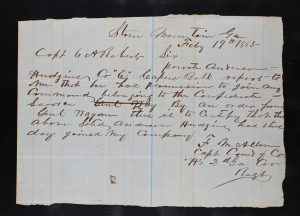 Stone Mountain Ga
Feby 19th 1863
Capt C A Roberts Sir
private Anderson
Hudgins Co "G" Capers Batt reports to
Me that he has permission to join any
Command belonging to the Confederate
Service By an order from
Genl this is to Certify that the
above Anderson Hudgins has this
day joined my Company
F M Allen
Capt Comdg Co
2d Ga
Regt